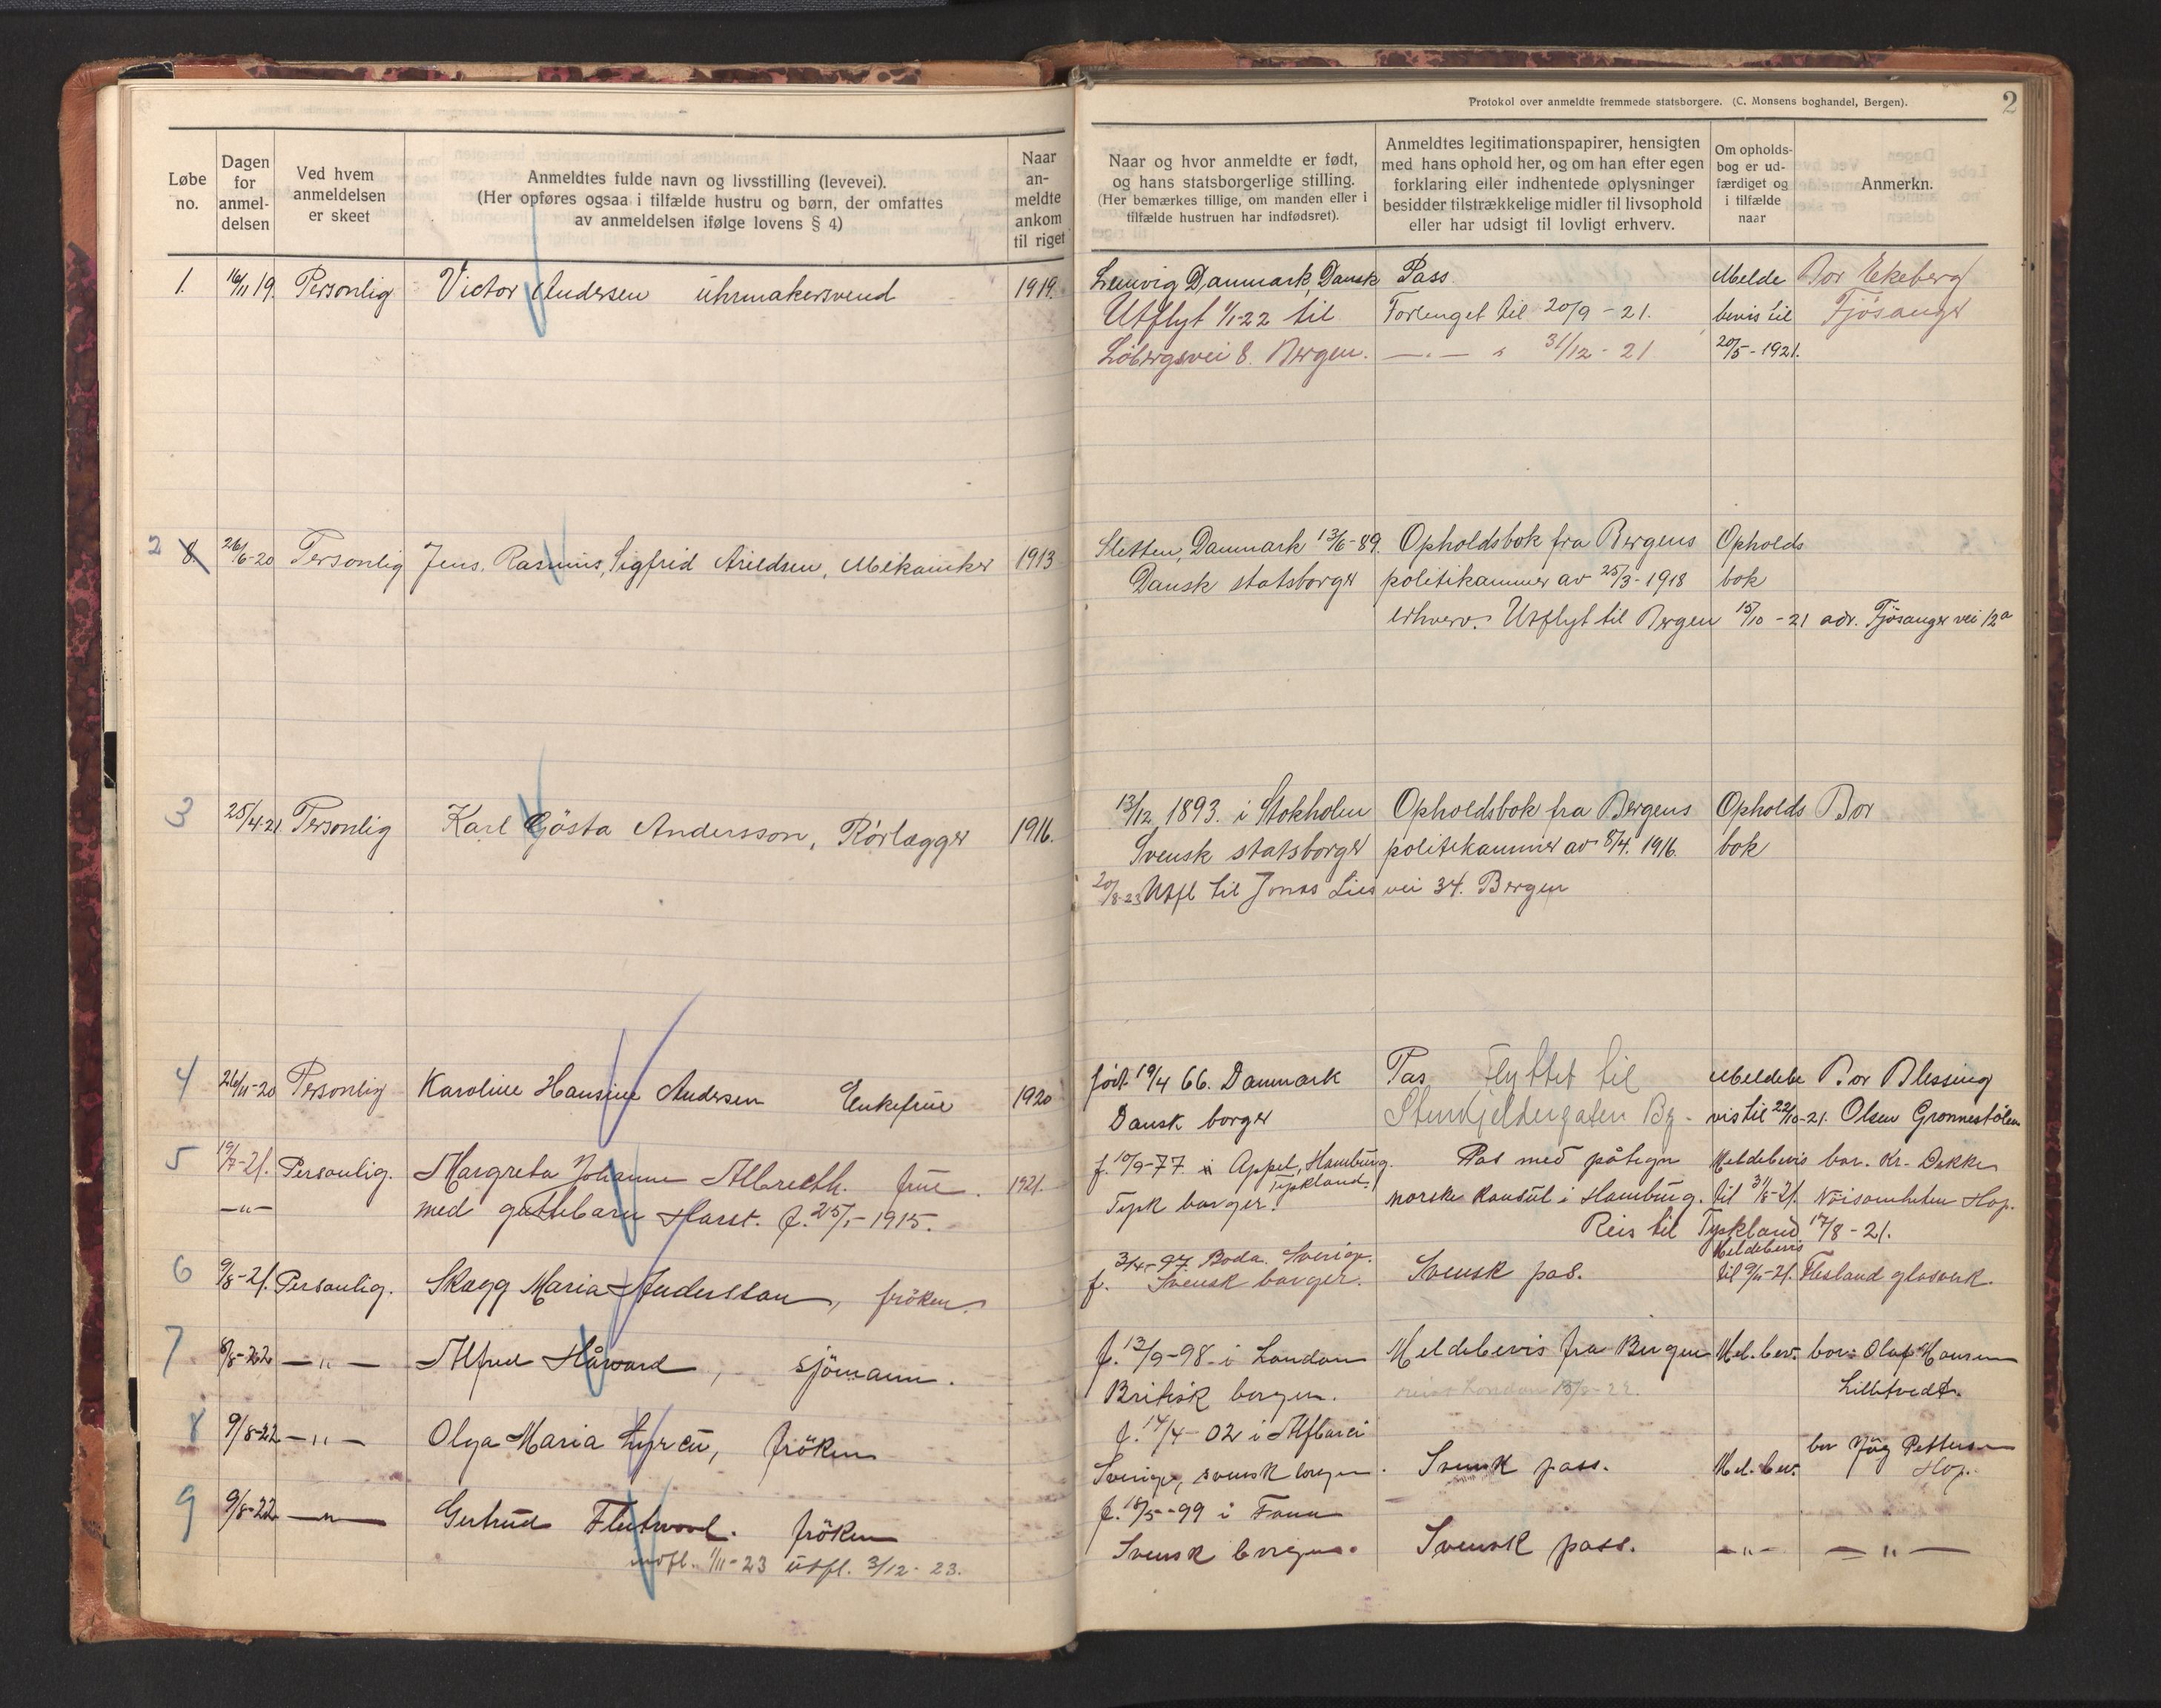 Protokol over anmeldte fremmede statsborgere. (C. Monsens boghandel, Bergen).
2
Løbe no.
Dagen for anmel- delsen
Ved hvem anmeldelsen er skeet
Anmeldtes fulde navn og livsstilling (levevei).
(Her opføres ogsaa i tilfælde hustru og børn, der omfattes
av anmeldelsen ifølge lovens § 4)
Naar an- meldte ankom til riget
Naar og hvor anmeldte er født,
og hans statsborgerlige stilling.
(Her bemærkes tillige, om manden eller i
tilfælde hustruen har indfødsret).
Anmeldtes legitimationspapirer, hensigten
med hans ophold her, og om han efter egen
forklaring eller indhentede oplysninger
besidder tilstrækkelige midler til livsophold
eller har udsigt til lovligt erhverv.
Om opholds-
bog er ud-
færdiget og
i tilfælde
naar
Anmerkn.
1. 16/11 19. Personlig Victor Andersen uhrmakersvend 1919. Lemvig Danmark, Dansk Pass Melde Bor Ekeberg
Utflyt 1/1-22 til Forlenget til 20/9 - 21. bevis til Fjøsanger
Løbergsvei 8. Bergen. — " — " 31/12 - 21 20/5 - 1921.
2 8. 26/6-20 Personlig Jens, Rasmus, Sigfrid Arildsen, Mekaniker 1913 Sletten, Danmark 13/6-89. Opholdsbok fra Bergens Opholds
Dansk statsborger politikammer av 25/3-1918 bok
erhverv. Utflyt til Bergen 15/10 - 21 adr. Fjøsanger vei 12a
3 25/4-21 Personlig Karl Gösta Andersson, Rörlægger 1916. 13/12 1893. i Stokholm Opholdsbok fra Bergens Opholds Bor
Svensk statsborger politikammer av 8/4. 1916. bok
20/8-23 Utfl til Jonas Lies vei 34. Bergen
4 26/11-20 Personlig Karoline Hansine Andersen Enkefrue 1920 født 19/4 66. Danmark Pas Flyttet til Meldebe Bor Blessing
Dansk borger Stenkjeldergaten Bg - vis til 22/10-21. Olsen Grønnestølen
5 19/7-21. Personlig. Margreta Johanne Albrecth. frue. 1921. f. 10/9-77 i Appel, Hamburg. Pas med påtegn Meldebevis bor. Kr. Dekke
—"— med guttebarn Harst. f. 25/1-1915. Tysk borger. Tyskland. norske konsul i Hamburg. til 31/8-21. Nøisomheten Hop.
Reis til Tyskland 17/8-21.
6 9/8-21. Personlig. Skagg Maria Andersson, frøken. f. 3/4-97 Boda. Sverige. Svensk pas. Meldebevis
Svensk borger. til 9/11-21. Flesland glasverk.
7 8/8-22 — " — Alfred Håward, sjømann. f. 13/9-98 i London Meldebevis fra Bergen Mel. bev. bor: Olaf Hansen
Britisk borger. reist London 15/8-22. Lilletvedt.
8 9/8-22 — " — Olga Maria frøken f. 14/4-02 i
Sverige, svensk borger. Svensk pass. Mel. bev. bor Petterse Hop.
9 9/8-22 — " — Gertrud Fleetwood. frøken f. 18/5-99 i Fana
Svensk borger. Svensk pass. — " — — " —
indfl. 1/11-23 utfl. 3/12-23.